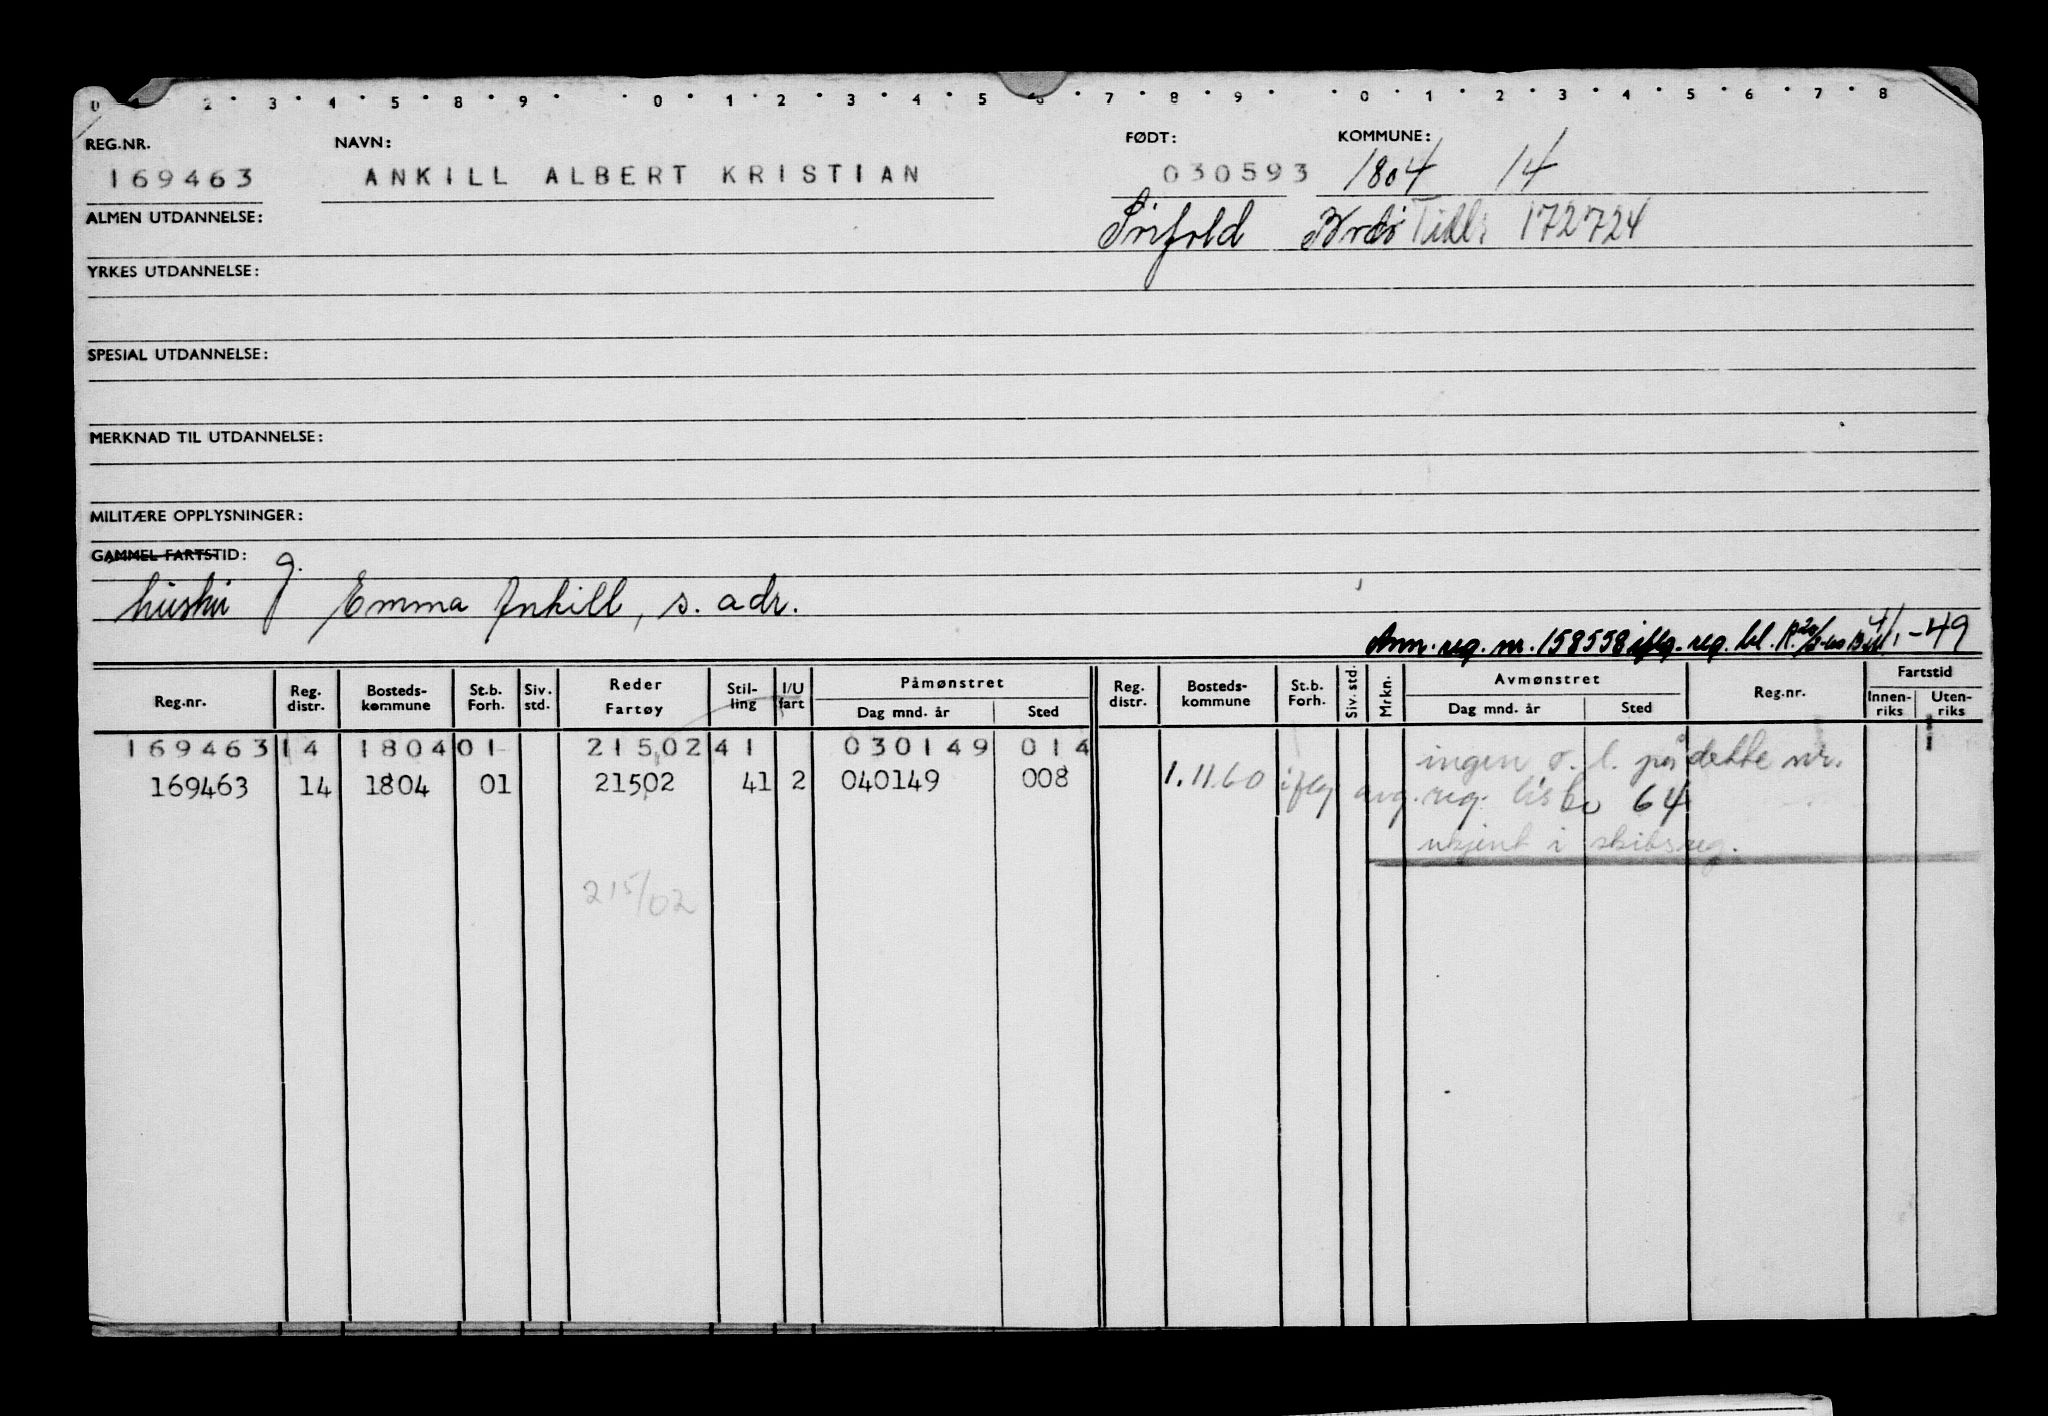 0 1 2 3 4 5 8 9 0 1 2 3 4 5 6 7 8 9 0 1 2 3 4 5 6 7 8
REG.NR. NAVN: FØDT: KOMMUNE:
169463 ANKILL ALBERT KRISTIAN 030593 1804 14
ALMEN UTDANNELSE: Tidl. 172724
YRKES UTDANNELSE:
SPESIAL UTDANNELSE:
MERKNAD TIL UTDANNELSE:
MILITÆRE OPPLYSNINGER:
GAMMEL FARTSTID: g.
hustru Emma Ankill, s. adr.
Ann. reg. nr. 158558 iflg. reg. bl. 4/1-49
Reg.nr. Reg. distr. Bosteds-kommune St.b. Forh. Siv. std. Reder Fartøy Stil-ling I/U fart Påmønstret Dag mnd. år Sted Reg. distr. Bosteds-kommune St.b. Forh. Siv. std. Mrkn. Avmønstret Dag mnd. år Sted Reg.nr. Fartstid Innen-riks Uten-riks
169463 14 1804 01 21502 41 030149 014 ingen o. l. på dette nr.
169463 14 1804 01 21502 41 2 040149 008 1.11.60 iflg. avg. reg. liste 64
ukjent i skibsreg.
215/02